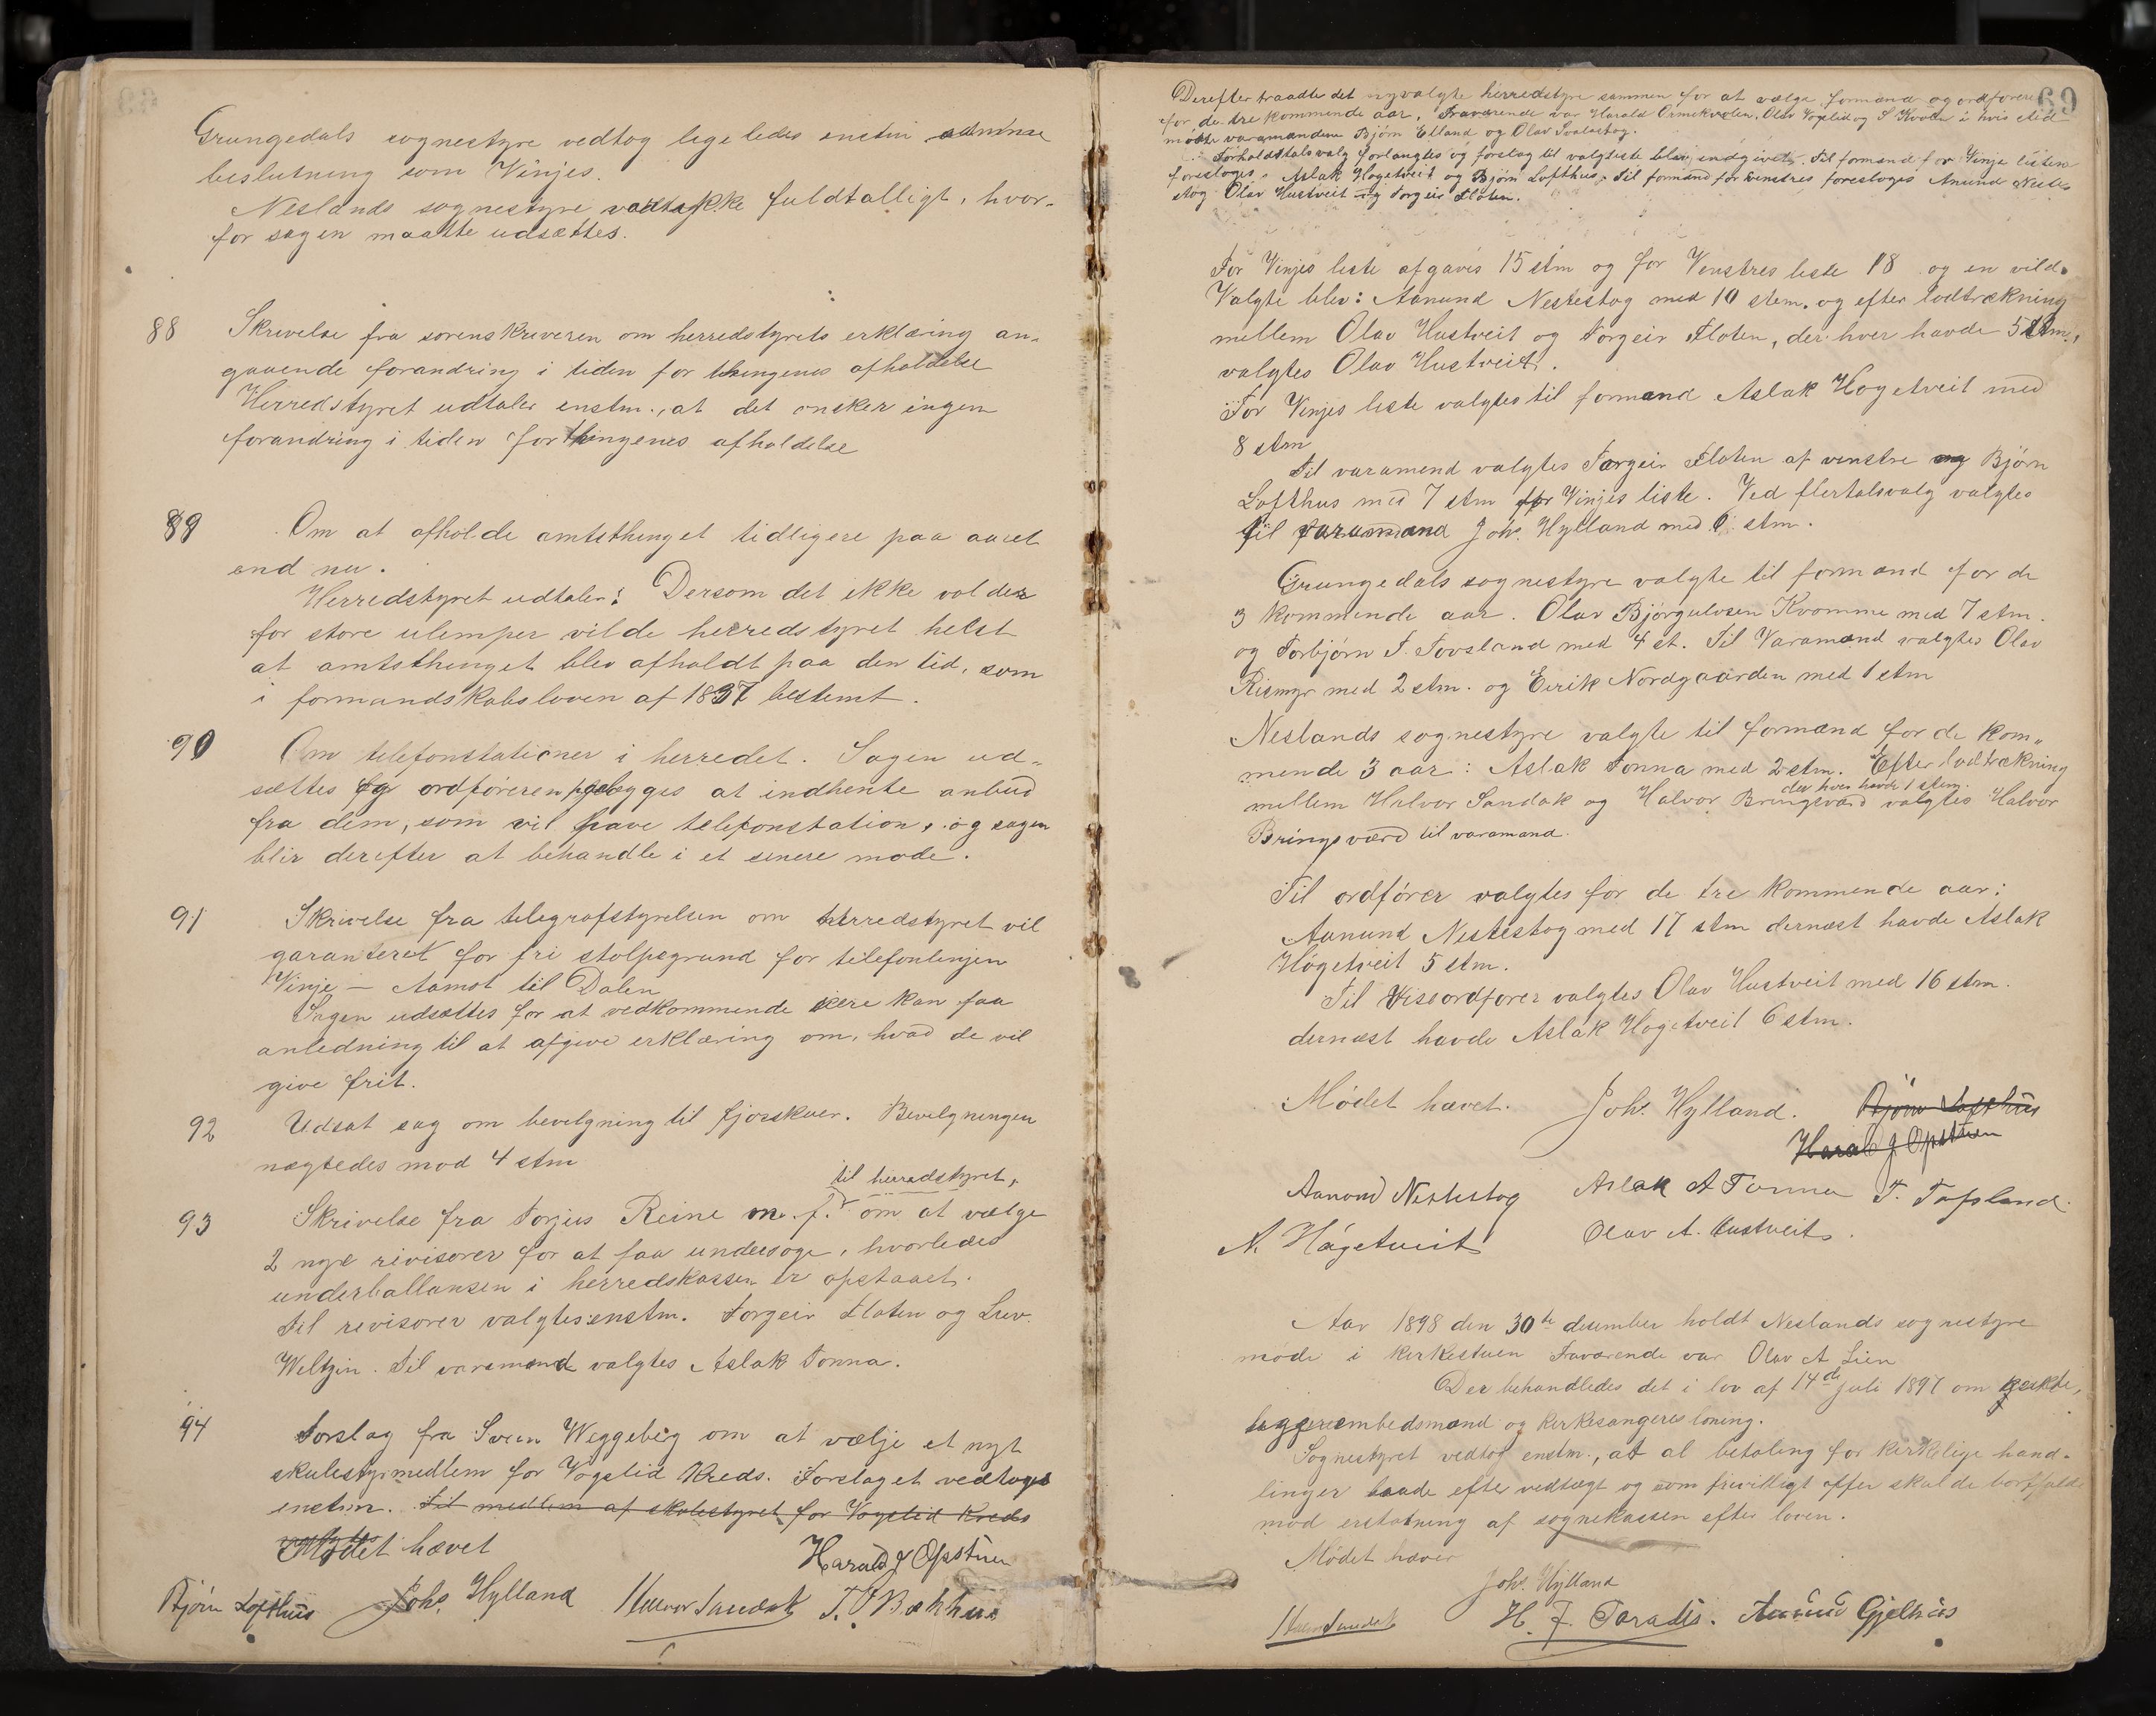 Grungedals sognestyre vedtog ligeledes enstm samme
beslutning som Vinjes.
Neslands sognestyre var ikke fuldtalligt, hvor-
for sagen maatte udsættes.
88 Skrivelse fra sorenskriveren om herredstyrets erklæring an-
gaaende forandring i tiden for thingenes afholdelse
Herredstyret udtaler enstm., at det ønsker ingen
forandring i tiden for thingenes afholdelse
89 Om at afholde amtsthinget tidligere paa aaret
end nu.
Herredstyret udtaler: Dersom det ikke volder
for store ulemper vilde herredstyret helst
at amtsthinget blev afholdt paa den tid, som
i formandskabsloven af 1837 bestemt.
90 Om telefonstationer i herredet. Sagen ud-
sættes og ordføreren paalægges at indhente anbud
fra dem, som vil have telefonstation, og sagen
blir derefter at behandle i et senere møde.
91 Skrivelse fra telegrafstyrelsen om herredstyret vil
garanteret for fri stolpegrund for telefonlinjen
Vinje - Aamot til Dalen
Sagen udsættes for at vedkommende eiere kan faa
anledning til at afgive erklæring om, hvad de vil
give frit.
92 Udsat sag om bevilgning til fjøsskuer. Bevilgningen
nægtedes mod 4 stm
til herredstyret,
93 Skrivelse fra Torjus Reine m. f. om at vælge
2 nye rivisorer for at faa undersøge, hvorledes
underballansen i herredskassen er opstaaet.
Til revisorer valgtes enstm. Torgeir Floten og Luv.
Weltzin. Til varamand valgtes Aslak Tonna.
94 Forslag fra Svein Weggeberg om at vælje et nyt
skulestyrmedlem for Vøgslid Kreds. Forslaget vedtoges
enstm. Til medlem af skolestyret for Vøgslid Kreds
valgtes
Mødet hævet
Harald J Opstuen
Bjørn Lofthus Johs. Hylland Halvor Sandok T. Bækhus
69
Derefter traadte det nyvalgte herredstyre sammen for at vælge formænd og ordfører
for de tre kommende aar. Fraværende var Harald Ormekvolen, Olav Vøgslid og S Kvaale i hvis sted
mødte varamændene Bjørn Edland og Olav
Forholdstalsvalg forlangtes og forslag til valgliste blev indgivet. Til formænd for Vinje listen
foresloges: Aslak Høgetveit og Bjørn Lofthus, Til formænd for venstres foresloges Anund Neste
støg Olav Hustveit og Torgeir Floten.
For Vinjes liste afgaves 15 stm og for Venstres liste 18 og en vild.
Valgte blev: Aanund Nestestøg med 10 stem. og efter lodtrækning
mellem Olav Hustveit og Torgeir Floten, der hver havde 5 stm.,
valgtes Olav Hustveit.
For Vinjes liste valgtes til formand Aslak Høgetveit med
8 stm
Til varamend valgtes Torgeir Floten af venstre og Bjørn
Lofthus med 7 stm for Vinjes liste. Ved flertalsvalg valgtes
til varamand Johs. Hylland med 6 stm.
Grungedals sognestyre valgte til formand for de
3 kommende aar. Olav Bjørgulvsen Kvomme med 7 stm.
og Torbjørn T. Tovsland med 4 st. Til Varamænd valgtes Olav
Rismyr med 2 stm. og Eirik Nordgaarden med 1 stm
Neslands sognestyre valgte til formænd for de kom-
mende 3 aar: Aslak Tonna med 2 stm. Efter lodtrækning
der hver havde 1 stem.
mellem Halvor Sandok og Halvor Bringsværd valgtes Halvor
Bringsværd til varamand.
Til ordfører valgtes for de tre kommende aar:
Aanund Nestestøg med 17 stm dernæst havde Aslak
Høgetveit 5 stm.
Til Viseordfører valgtes Olav Hustveit med 16 stm.
dernæst havde Aslak Høgetveit 6 stm.
Mødet hævet. Johs. Hylland. Bjørn Lofthus
Harald J Opstuen
Aanond Nestestog Aslak A Tonna T. Tofsland.
A. Høgetveit Olav A. Hustveit.
Aar 1898 den 30te desember holdt Neslands sognestyre
møde i kirkestuen Fraværende var Olav A Lien
Der behandledes det i lov af 14de juli 1897 om geistl,
embedsmænd og kirkesangeres lønning.
Sognestyret vedtog enstm., at al betaling for kirkelige hand-
linger baade efter vedtægt og som frivilligt offer skulde bortfalde
mod erstatning af sognekassen efter loven.
Mødet hævet
Johs. Hylland
Halvor Sandok H. J. Taradis. Aanund Gjelhus